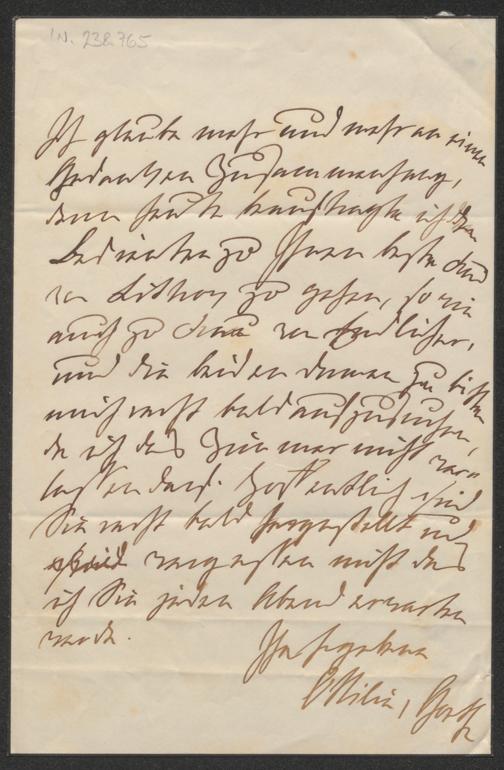 IN. 238.765
Ich glaube mehr und mehr an einen
Gedanken Zusammenhang,
denn heute beauftragte ich den
Bedienten zu Ihnen beste Frau
von Littrow zu gehen, so wie
auch zu Frau von
und die beiden Damen zu bitten
mich recht bald aufzusuchen,
da ich das Zimmer nicht ver-
lassen darf. Hoffentlich sind
Sie recht bald hergestellt und
vergessen nicht das
ich Sie jeden Abend erwarten
werde.
Ihre ergebene
Ottilie, Goethe